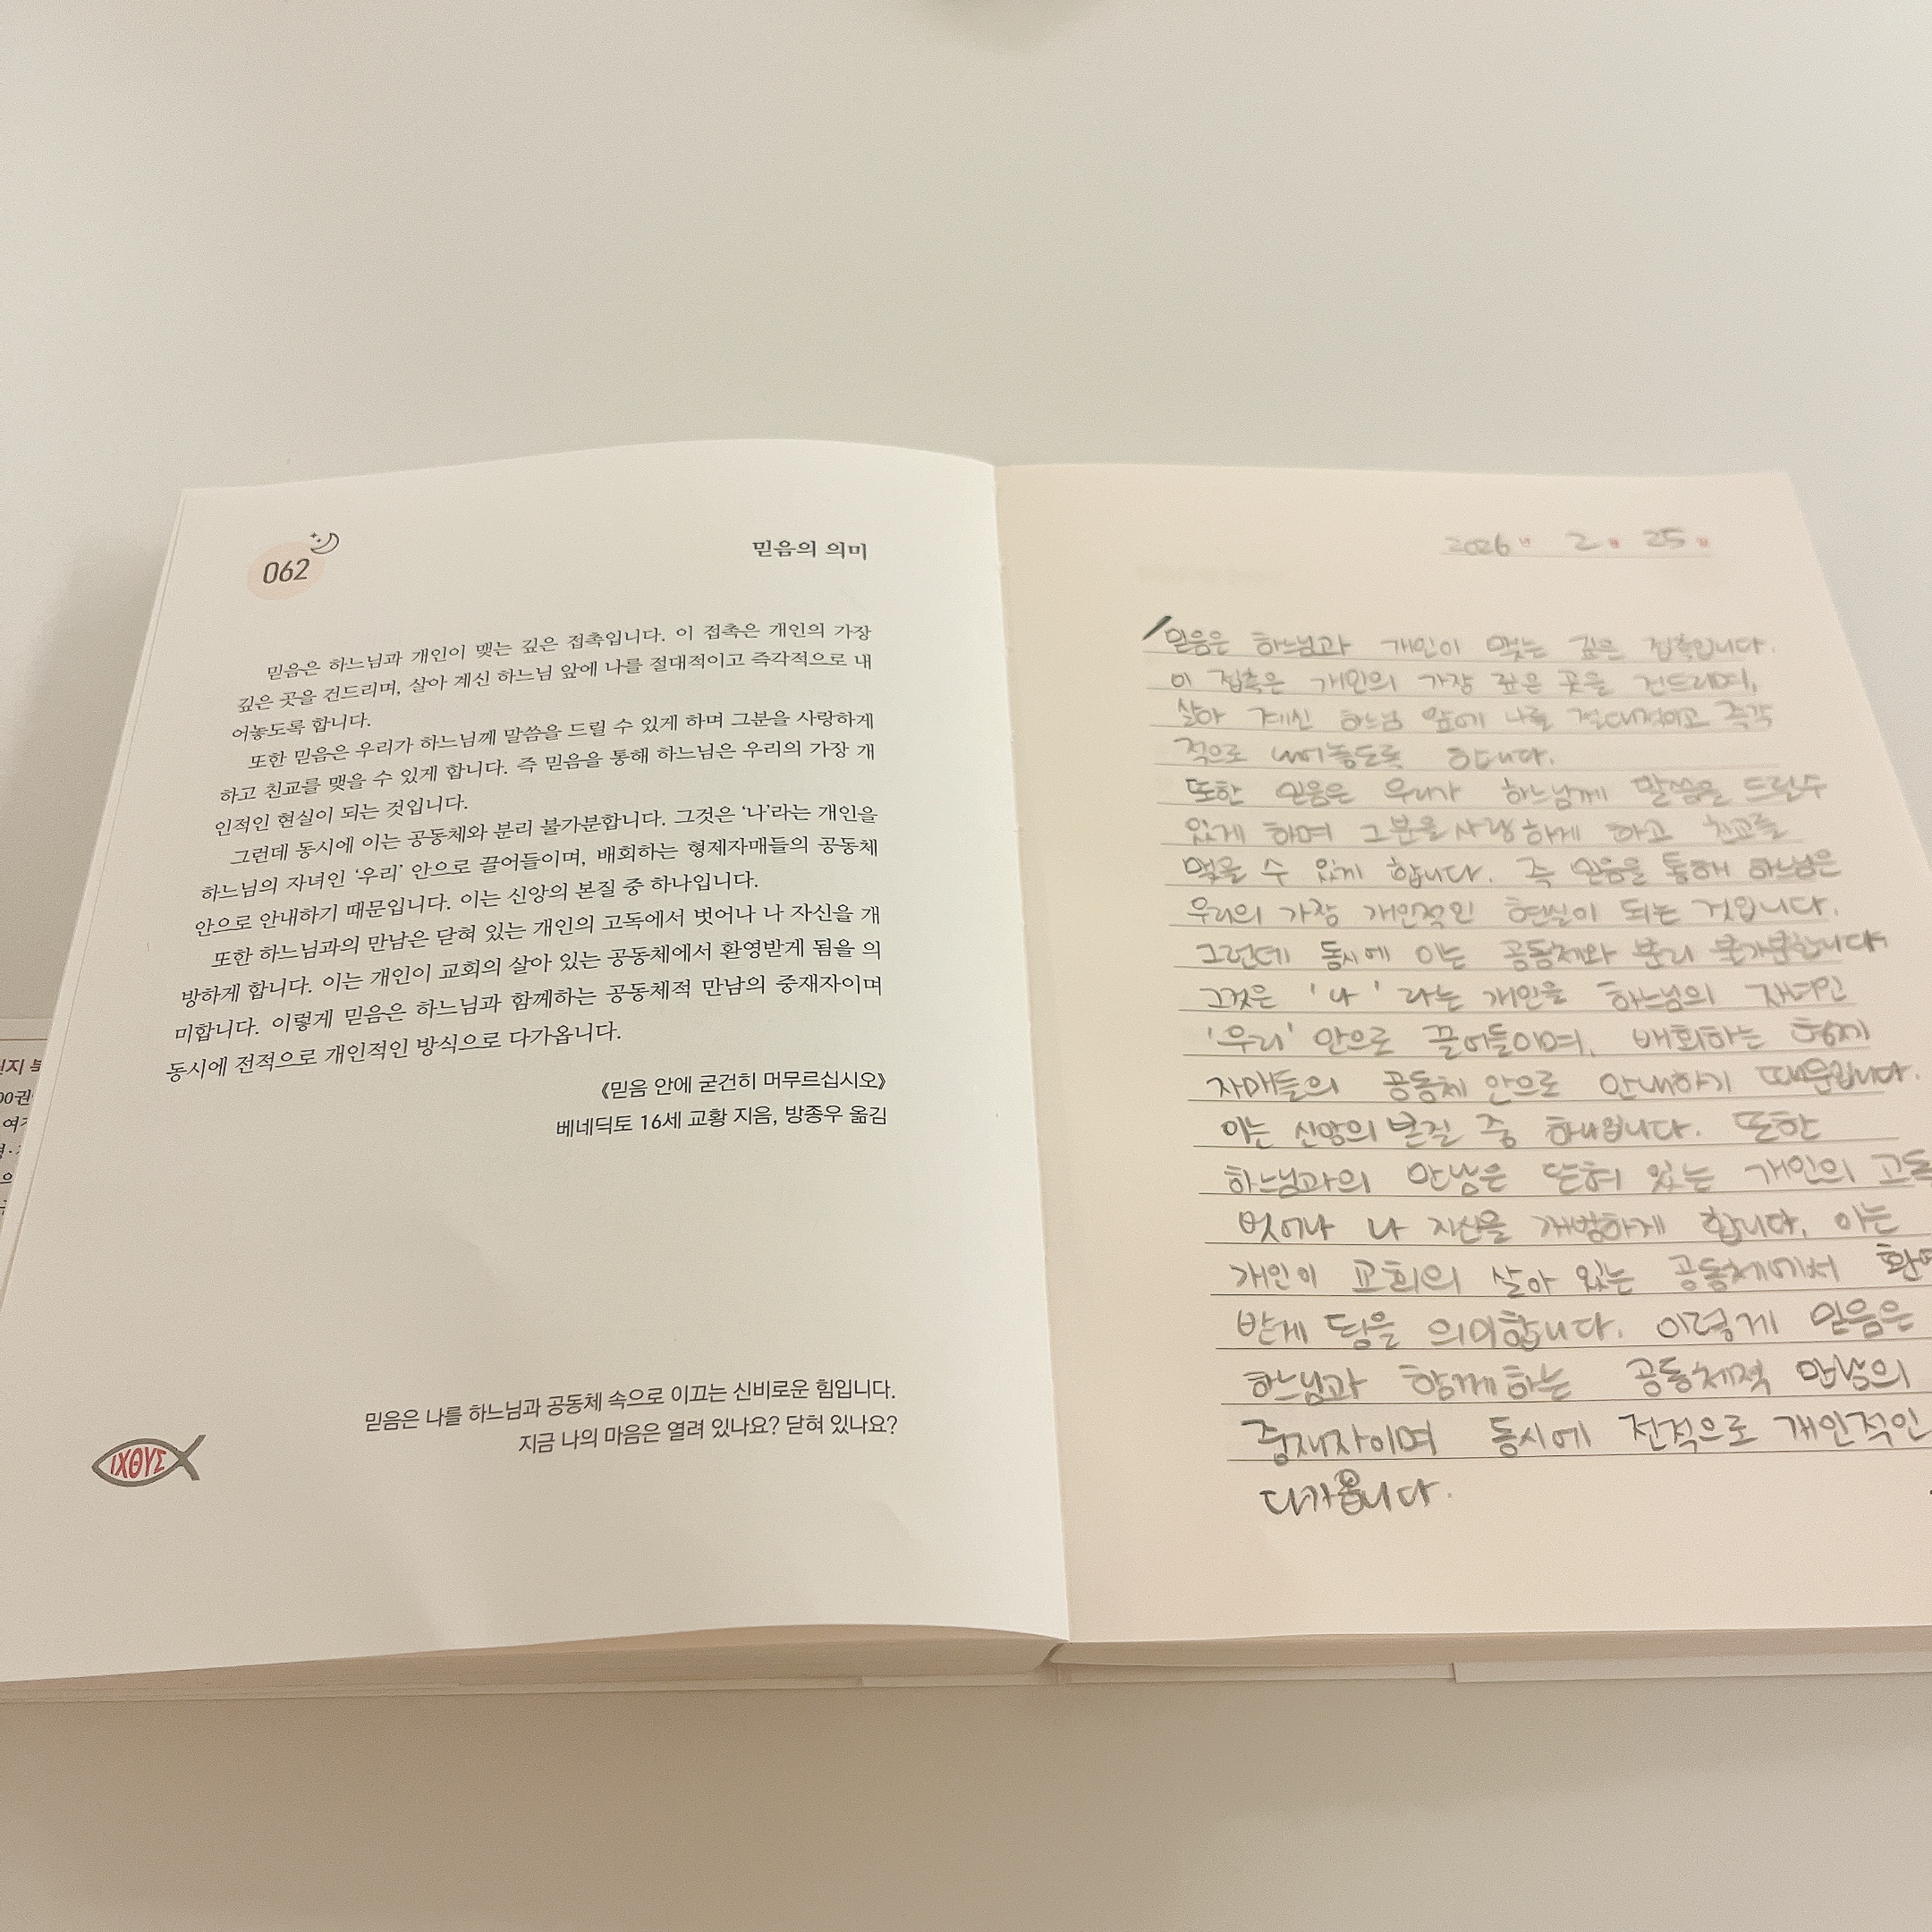 062
믿음의 의미
믿음은 하느님과 개인이 맺는 깊은 접촉입니다. 이 접촉은 개인의 가장
깊은 곳을 건드리며, 살아 계신 하느님 앞에 나를 절대적이고 즉각적으로 내
어놓도록 합니다.
또한 믿음은 우리가 하느님께 말씀을 드릴 수 있게 하며 그분을 사랑하게
하고 친교를 맺을 수 있게 합니다. 즉 믿음을 통해 하느님은 우리의 가장 개
인적인 현실이 되는 것입니다.
그런데 동시에 이는 공동체와 분리 불가분합니다. 그것은 '나'라는 개인을
하느님의 자녀인 '우리' 안으로 끌어들이며, 배회하는 형제자매들의 공동체
안으로 안내하기 때문입니다. 이는 신앙의 본질 중 하나입니다.
또한 하느님과의 만남은 닫혀 있는 개인의 고독에서 벗어나 나 자신을 개
방하게 합니다. 이는 개인이 교회의 살아 있는 공동체에서 환영받게 됨을 의
미합니다. 이렇게 믿음은 하느님과 함께하는 공동체적 만남의 중재자이며
동시에 전적으로 개인적인 방식으로 다가옵니다.
《믿음 안에 굳건히 머무르십시오》
베네딕토 16세 교황 지음, 방종우 옮김
믿음은 나를 하느님과 공동체 속으로 이끄는 신비로운 힘입니다.
지금 나의 마음은 열려 있나요? 닫혀 있나요?
ΙΧΘΥΣ
2026년 2월 25일
믿음은 하느님과 개인이 맺는 깊은 접촉입니다.
이 접촉은 개인의 가장 깊은 곳을 건드리며,
살아 계신 하느님 앞에 나를 절대적이고 즉각
적으로 내어놓도록 합니다.
또한 믿음은 우리가 하느님께 말씀을 드릴수
있게 하며 그분을 사랑하게 하고 친교를
맺을 수 있게 합니다. 즉 믿음을 통해 하느님은
우리의 가장 개인적인 현실이 되는 것입니다.
그런데 동시에 이는 공동체와 분리 불가분합니다
그것은 '나'라는 개인을 하느님의 자녀인
'우리' 안으로 끌어들이며, 배회하는 형제
자매들의 공동체 안으로 안내하기 때문입니다.
이는 신앙의 본질 중 하나입니다. 또한
하느님과의 만남은 닫혀 있는 개인의 고독
벗어나 나 자신을 개방하게 합니다. 이는
개인이 교회의 살아 있는 공동체에서
받게 됨을 의미합니다. 이렇게 믿음은
하느님과 함께하는 공동체적 만남의
중재자이며 동시에 전적으로 개인적인
다가옵니다.